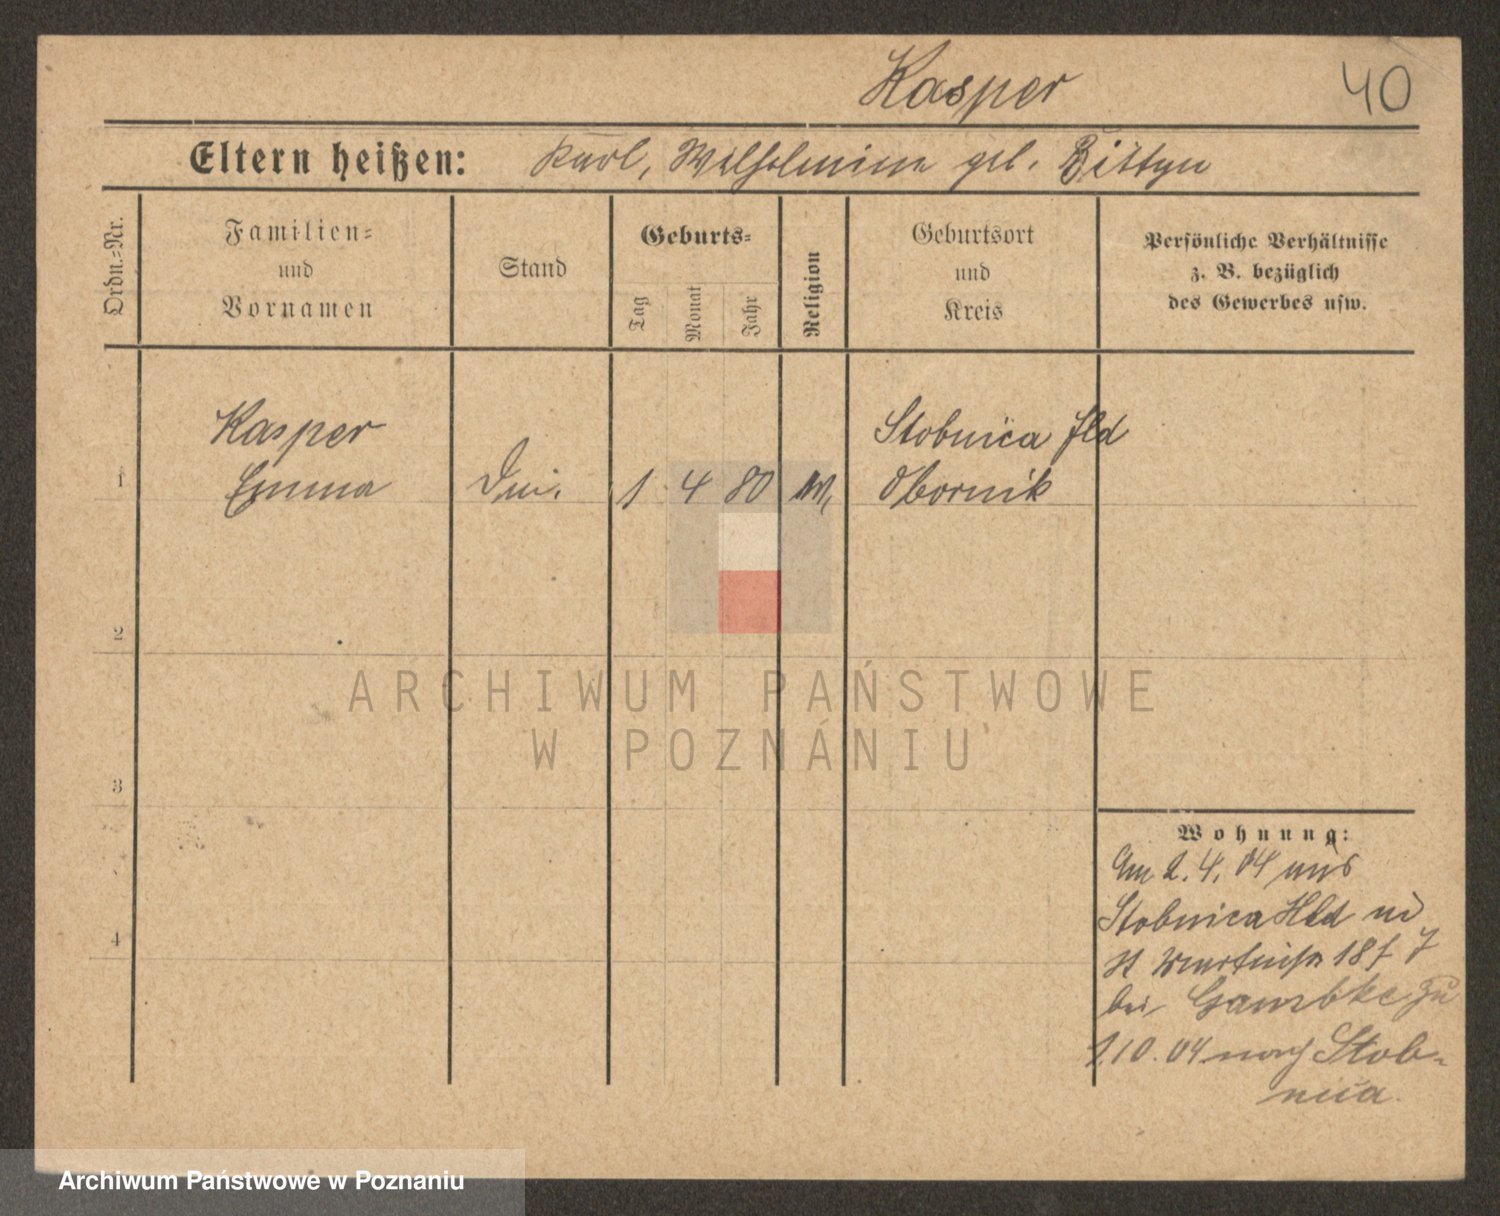 Kasper
40
Eltern heißen: Karl, Wilhelmine geb. Bittyn
Ordn.-Nr.
Familien-
und
Vornamen
Stand
Geburts-
Tag
Monat
Jahr
Religion
Geburtsort
und
Kreis
Persönliche Verhältnisse
z. B. bezüglich
des Gewerbes usw.
Kasper
Stobnica Hld
1 Emma 1 4 80 Obornik
2
3
4
Wohnung:
Am 2. 4. 04 aus
Stobnica Hld
18
bei
1.10.04 nach Stob-
nica.
ARCHIWUM PAŃSTWOWE
W POZNANIU
Archiwum Państwowe w Poznaniu